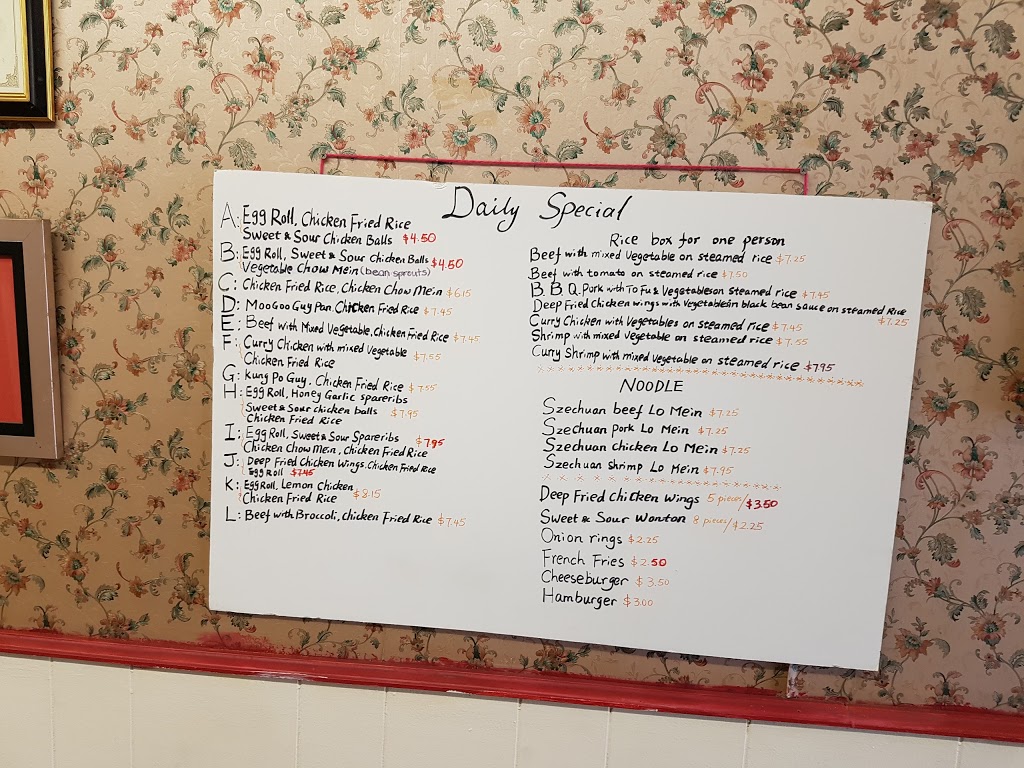 Daily Special
A: Egg Roll, Chicken Fried Rice
Sweet & Sour Chicken Balls $4.50
B: Egg Roll, Sweet & Sour Chicken Balls $4.50
Vegetable Chow Mein (bean sprouts)
C: Chicken Fried Rice, Chicken Chow Mein $6.15
D: Moo Goo Guy Pan, Chicken Fried Rice $7.45
E: Beef with Mixed Vegetable, Chicken Fried Rice $7.45
F: Curry Chicken with mixed Vegetable $7.55
Chicken Fried Rice
G: Kung Po Guy, Chicken Fried Rice $7.55
H: Egg Roll, Honey Garlic spareribs
Sweet & Sour chicken balls $7.95
Chicken Fried Rice
I: Egg Roll, Sweet & Sour Spareribs $7.95
Chicken Chow Mein, Chicken Fried Rice
J: Deep Fried Chicken Wings, Chicken Fried Rice
Egg Roll $7.45
K: Egg Roll, Lemon Chicken $8.15
Chicken Fried Rice
L: Beef with Broccoli, Chicken Fried Rice $7.45
Rice box for one person
Beef with mixed Vegetable on steamed rice $7.25
Beef with tomato on steamed rice $7.50
B.B.Q. Pork with To Fu & Vegetables on Steamed rice $7.45
Deep Fried Chicken wings with Vegetables in black bean sauce on steamed Rice
$7.25
Curry Chicken with Vegetables on steamed rice $7.45
Shrimp with mixed Vegetable on steamed rice $7.55
Curry Shrimp with mixed vegetable on steamed rice $7.95
NOODLE
Szechuan beef Lo Mein $7.25
Szechuan pork Lo Mein $7.25
Szechuan chicken Lo Mein $7.25
Szechuan shrimp Lo Mein $7.95
Deep Fried Chicken Wings 5 pieces/$3.50
Sweet & Sour Wonton 8 pieces/$2.25
Onion rings $2.25
French Fries $2.50
Cheeseburger $3.50
Hamburger $3.00